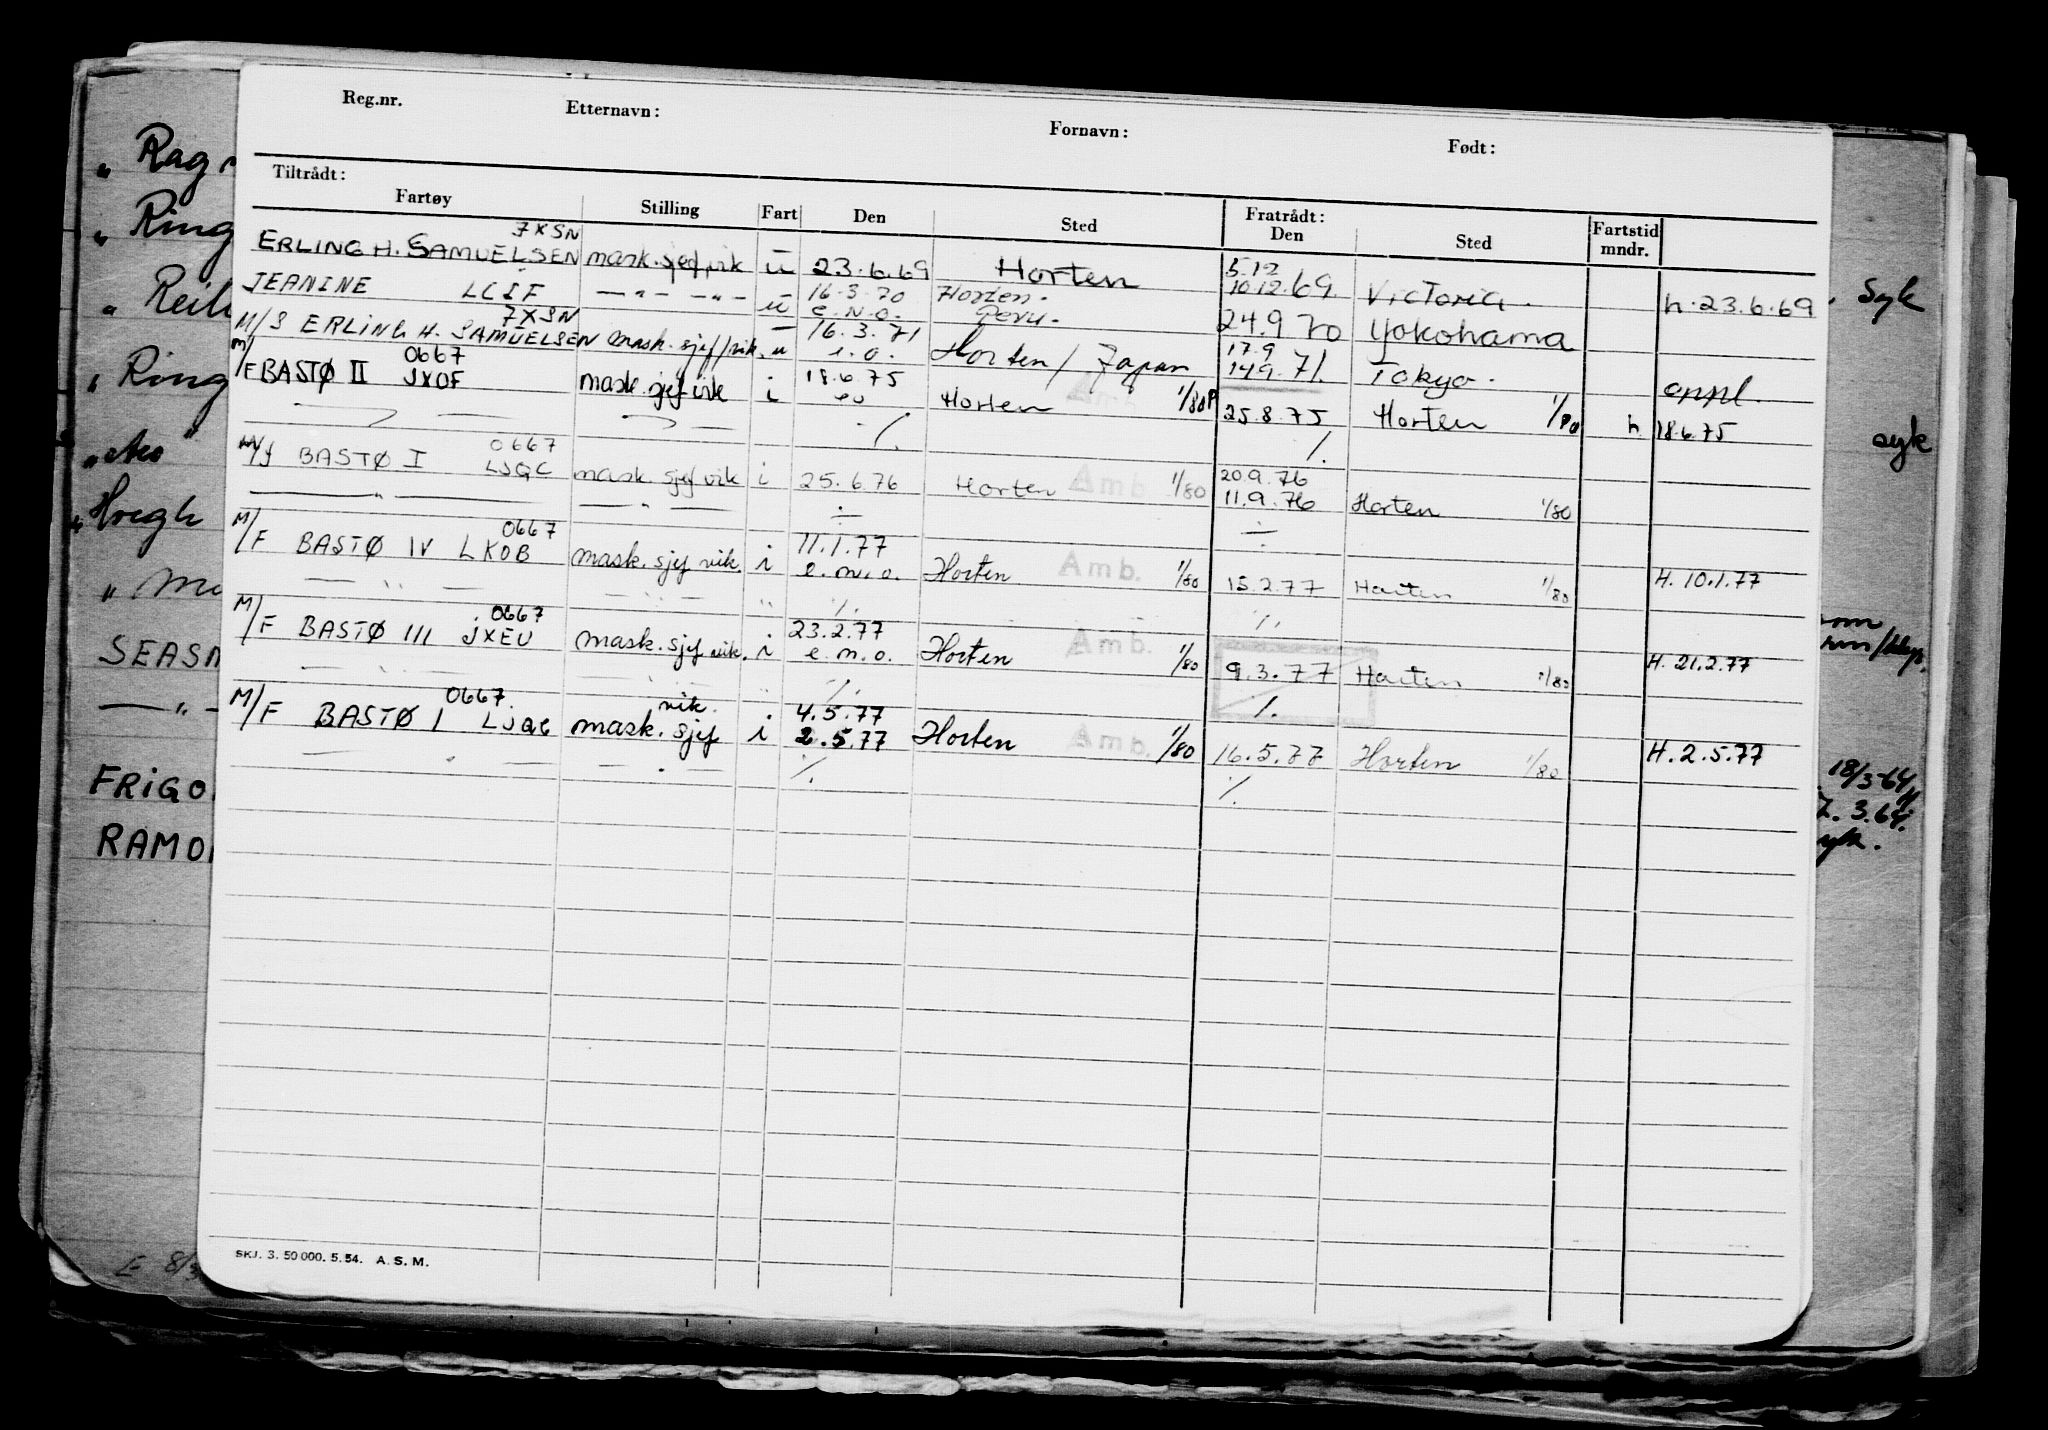 Reg.nr. Etternavn: Fornavn: Født:
Tiltrådt: Fratrådt:
Fartøy Stilling Fart Den Sted Den Sted Fartstid mndr.
7XSN 5.12
ERLING H. SAMUELSEN mask.sjef vik u 23.6.69 Horten 10.12.69 Victoria. h. 23.6.69
JEANINE LCIF — " — — " — u 16.3.70 e.n.o. Horten. Peru. 24.9.70 Yokohama
7XSN 17.9
M/S ERLING H. SAMUELSEN mask.sjef/vik. u 16.3.71 e.o. Horten / Japan 14.9.71. Tokyo. oppl.
0667
M/F BASTØ II JXOF mask.sjef vik i 18.6.75 eo Horten Amb 1/80 25.8.75 Horten 1/80 h 18.6.75
./. ./.
0667 20.9.76
M/f BASTØ I LJQC mask. sjef vik i 25.6.76 Horten Amb 1/80 11.9.76 Horten 1/80
— " — — " — ÷ ÷
0667
M/F BASTØ IV LKOB mask. sjef vik. i 11.1.77 e.m.o. Horten Amb. 1/80 15.2.77 Horten 1/80 H. 10.1.77
— " — — " — " ./. ./.
0667
M/F BASTØ III JXEU mask. sjef vik. i 23.2.77 e.m.o. Horten Amb. 1/80 9.3.77 Horten 1/80 H. 21.2.77
— " — — " — " ./. ./.
0667. vik. 4.5.77
M/F BASTØ I LJQC mask. sjef i 2.5.77 Horten Amb. 1/80 16.5.77 Horten 1/80 H. 2.5.77
— " — — " — ./. ./.
SKJ. 3. 50 000. 5. 54. A. S. M.
" Rag
" Ring
" Reil
" Ring
Hoegh
SEAS
— " —
FRIGO
RAMO
E 8/3
Syk
syk
om
18/3-64
7. 3.64.
syk.